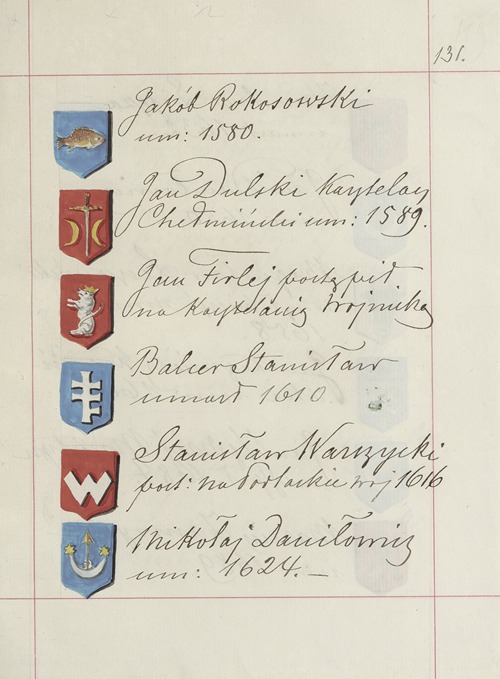 131.
Jakób Rokosowski
um: 1580.
Jan Dulski Kasztelan
Chełmiński um: 1589.
Jan Firlej postąpił
na Kasztelanię Wojnicką
Balcer Stanisław
umarł 1610.
Stanisław Warszycki
post: na Podlaskie woj 1616
Mikołaj Daniłowicz
um: 1624.—